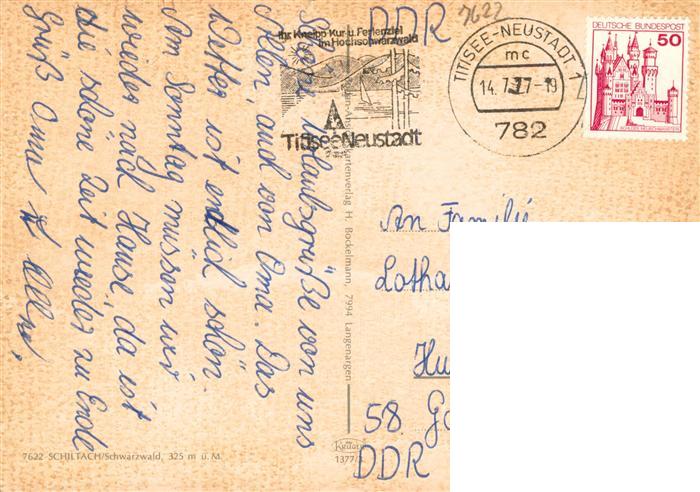 DDR
7622
Ihr Kneipp Kur- u. Ferienziel
im Hochschwarzwald
Titisee-Neustadt
TITISEE-NEUSTADT 1
mc
14.7.77-19
782
DEUTSCHE BUNDESPOST
50
Liebe Urlaubsgrüße von uns
allen, auch von Oma. Das
Wetter ist endlich schön.
Am Sonntag müssen wir
wieder nach Hause, da ist
die schöne Zeit wieder zu Ende
Gruß Oma
H. Bockelmann, 7994 Langenargen
An Familie
Lotha
Hu
58. Go
DDR
Krüger
1377/3
7622 SCHILTACH/Schwarzwald, 325 m ü. M.